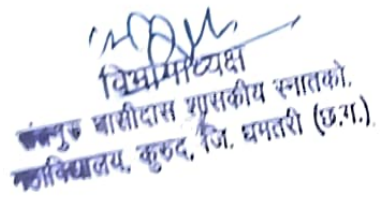 विभागाध्यक्ष
घासीदास शासकीय स्नातको.
महाविद्यालय, कुरुद, जि. धमतरी (छ.ग.)